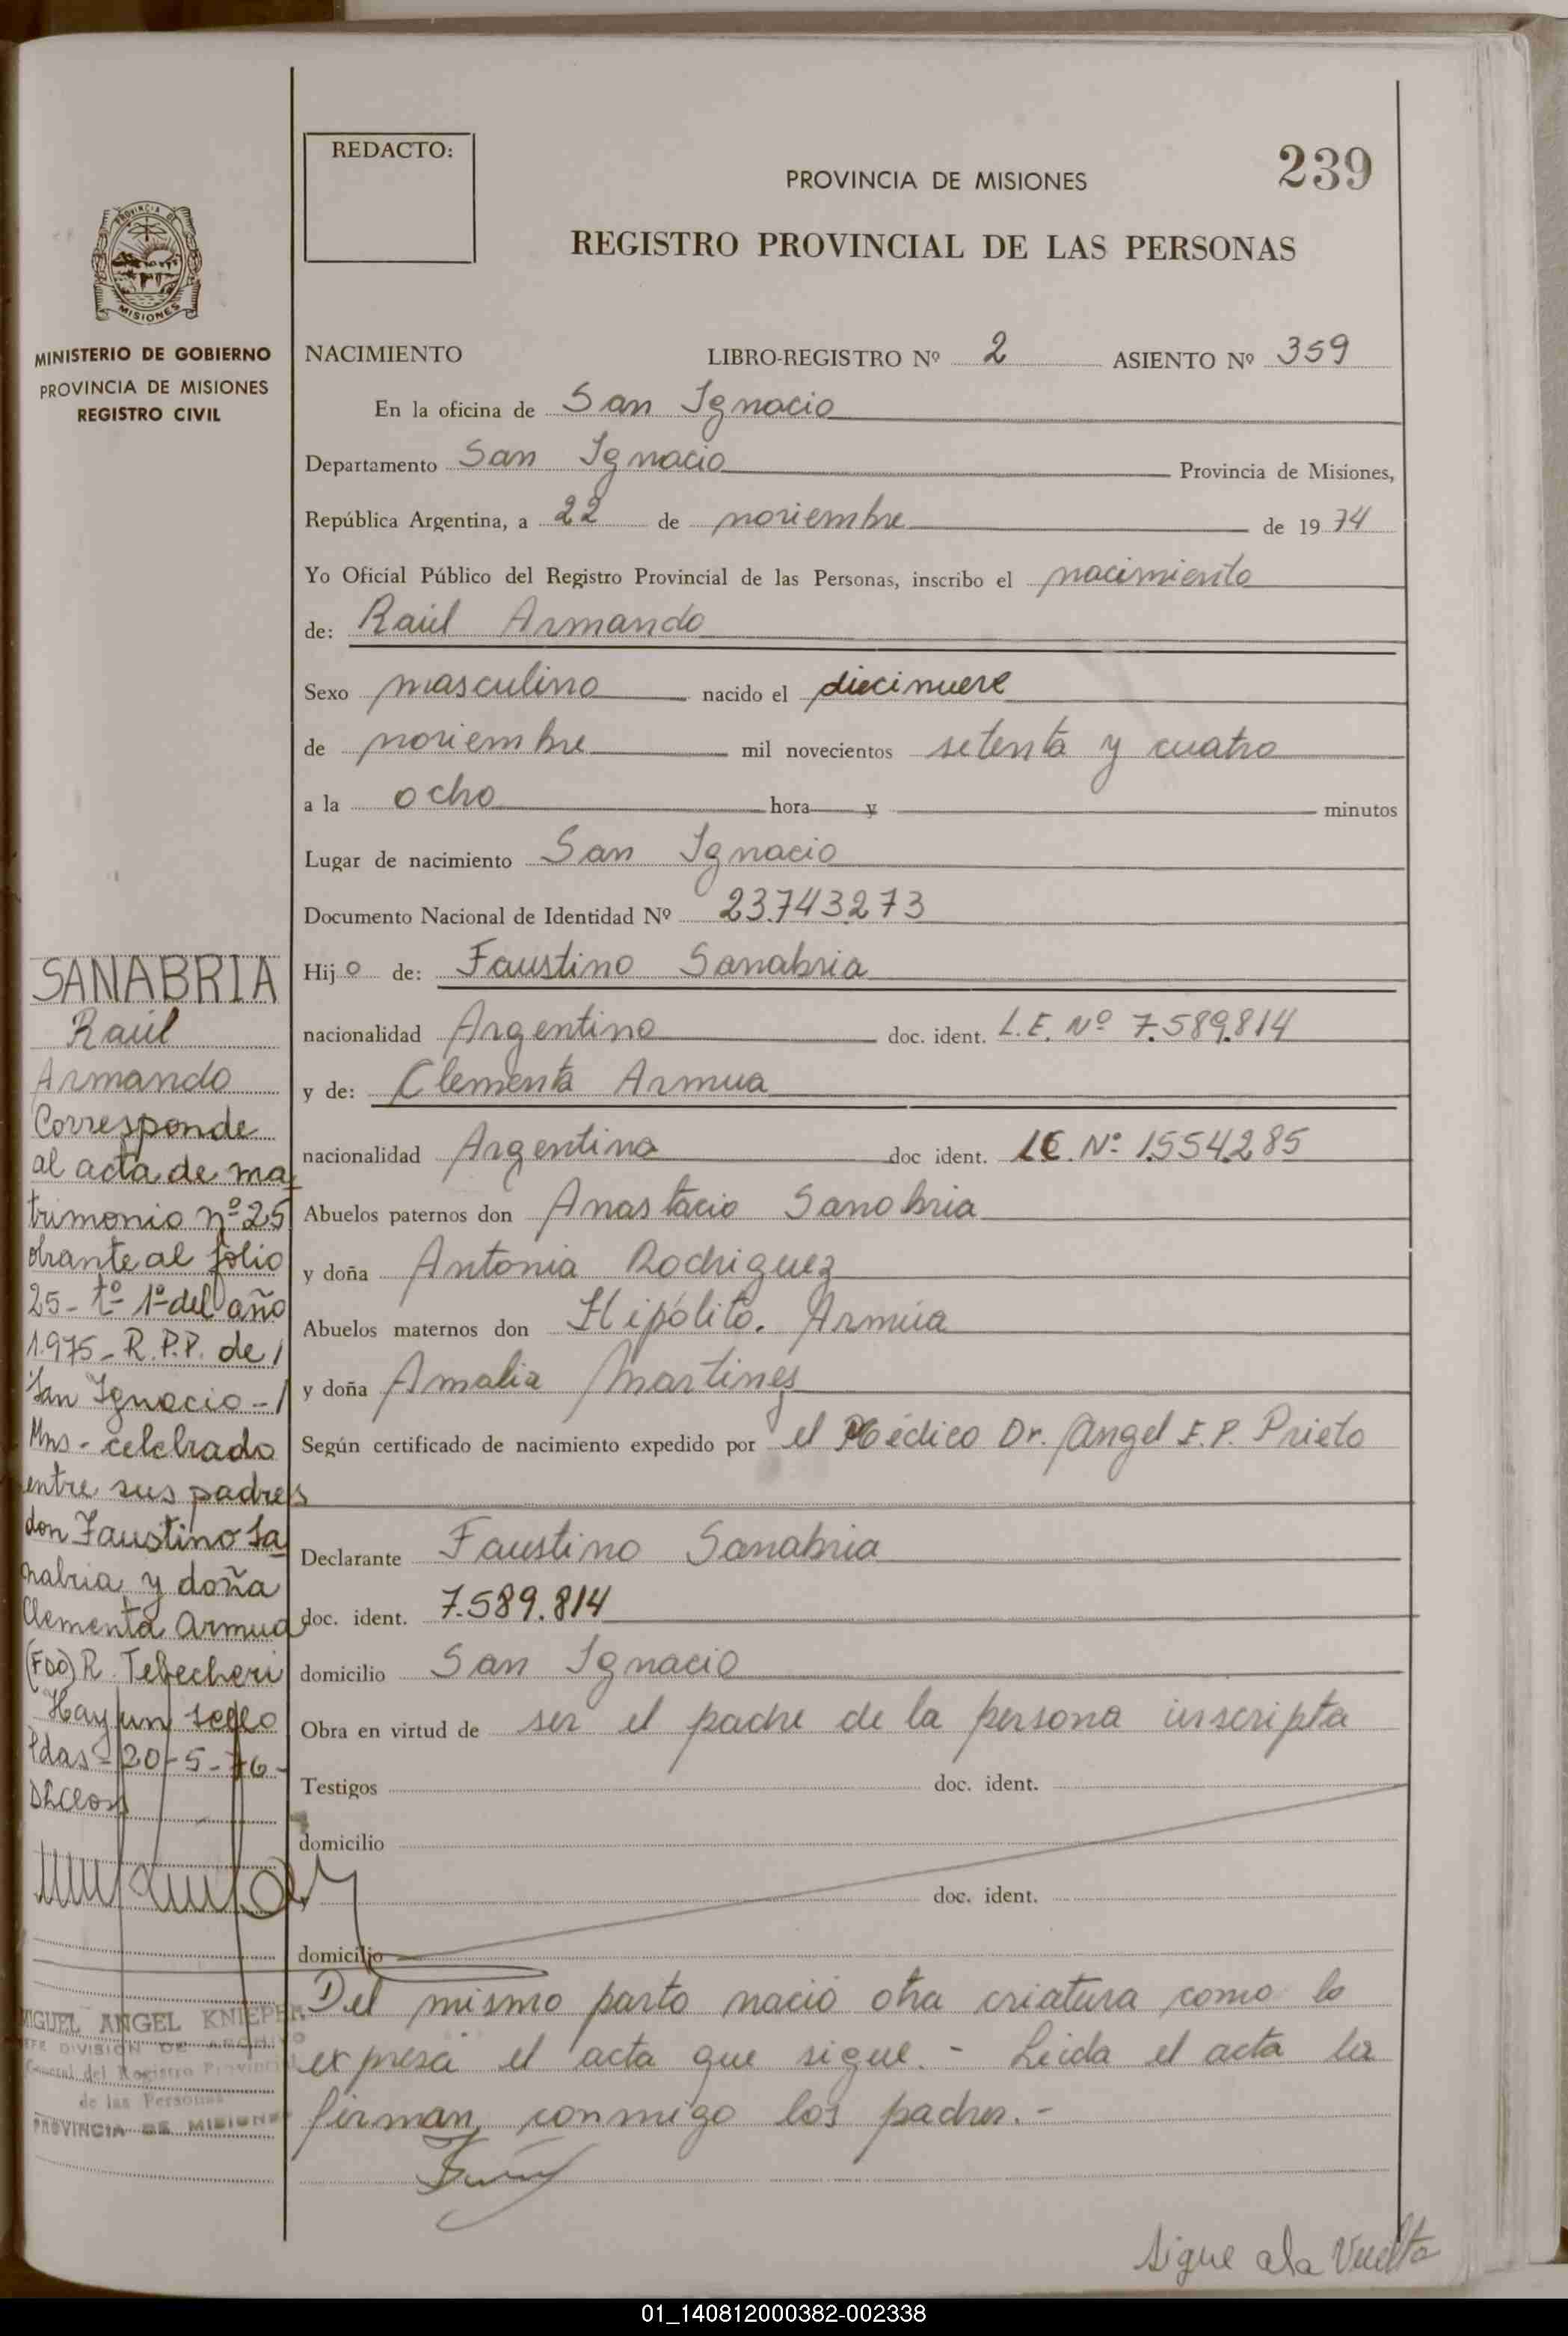 REDACTO:
239
PROVINCIA DE MISIONES
REGISTRO PROVINCIAL DE LAS PERSONAS
PROVINCIA DE
MISIONES
MINISTERIO DE GOBIERNO
PROVINCIA DE MISIONES
REGISTRO CIVIL
NACIMIENTO LIBRO-REGISTRO Nº 2 ASIENTO Nº 359
En la oficina de San Ignacio
Departamento San Ignacio Provincia de Misiones,
República Argentina, a 22 de noviembre de 1974
Yo Oficial Público del Registro Provincial de las Personas, inscribo el nacimiento
de: Raúl Armando
Sexo masculino nacido el diecinueve
de noviembre mil novecientos setenta y cuatro
a la ocho hora y minutos
Lugar de nacimiento San Ignacio
Documento Nacional de Identidad Nº 23.743.273
Hijo de: Faustino Sanabria
nacionalidad Argentino doc. ident. L.E. Nº 7.589.814
y de: Clementa Armua
nacionalidad Argentina doc ident. LC. Nº 1.554.285
Abuelos paternos don Anastacio Sanabria
y doña Antonia Rodriguez
Abuelos maternos don Hipólito. Armúa
y doña Amalia Martines
Según certificado de nacimiento expedido por el Médico Dr. Angel E.P. Prieto
Declarante Faustino Sanabria
doc. ident. 7.589.814
domicilio San Ignacio
Obra en virtud de ser el padre de la persona inscripta
Testigos doc. ident.
domicilio
doc. ident.
domicilio
Del mismo parto nació otra criatura como lo
expresa el acta que sigue.- Leida el acta la
firman conmigo los padres.-
Sigue a la Vuelta
SANABRIA
Raúl
Armando
Corresponde
al acta de ma
trimonio nº 25
obrante al folio
25- tº 1º del año
1.975- R.P.P. de /
San Ignacio-/
Mns- celebrado
entre sus padres
don Faustino Sa
nabria y doña
Clementa Armua
(Fdo) R. Tebecheri
Hay un sello
Pdas- 20-5-76-
MIGUEL ANGEL KNIEPER
JEFE DIVISION DE ARCHIVO
General del Registro Provincial
de las Personas
PROVINCIA DE MISIONES
01_140812000382-002338